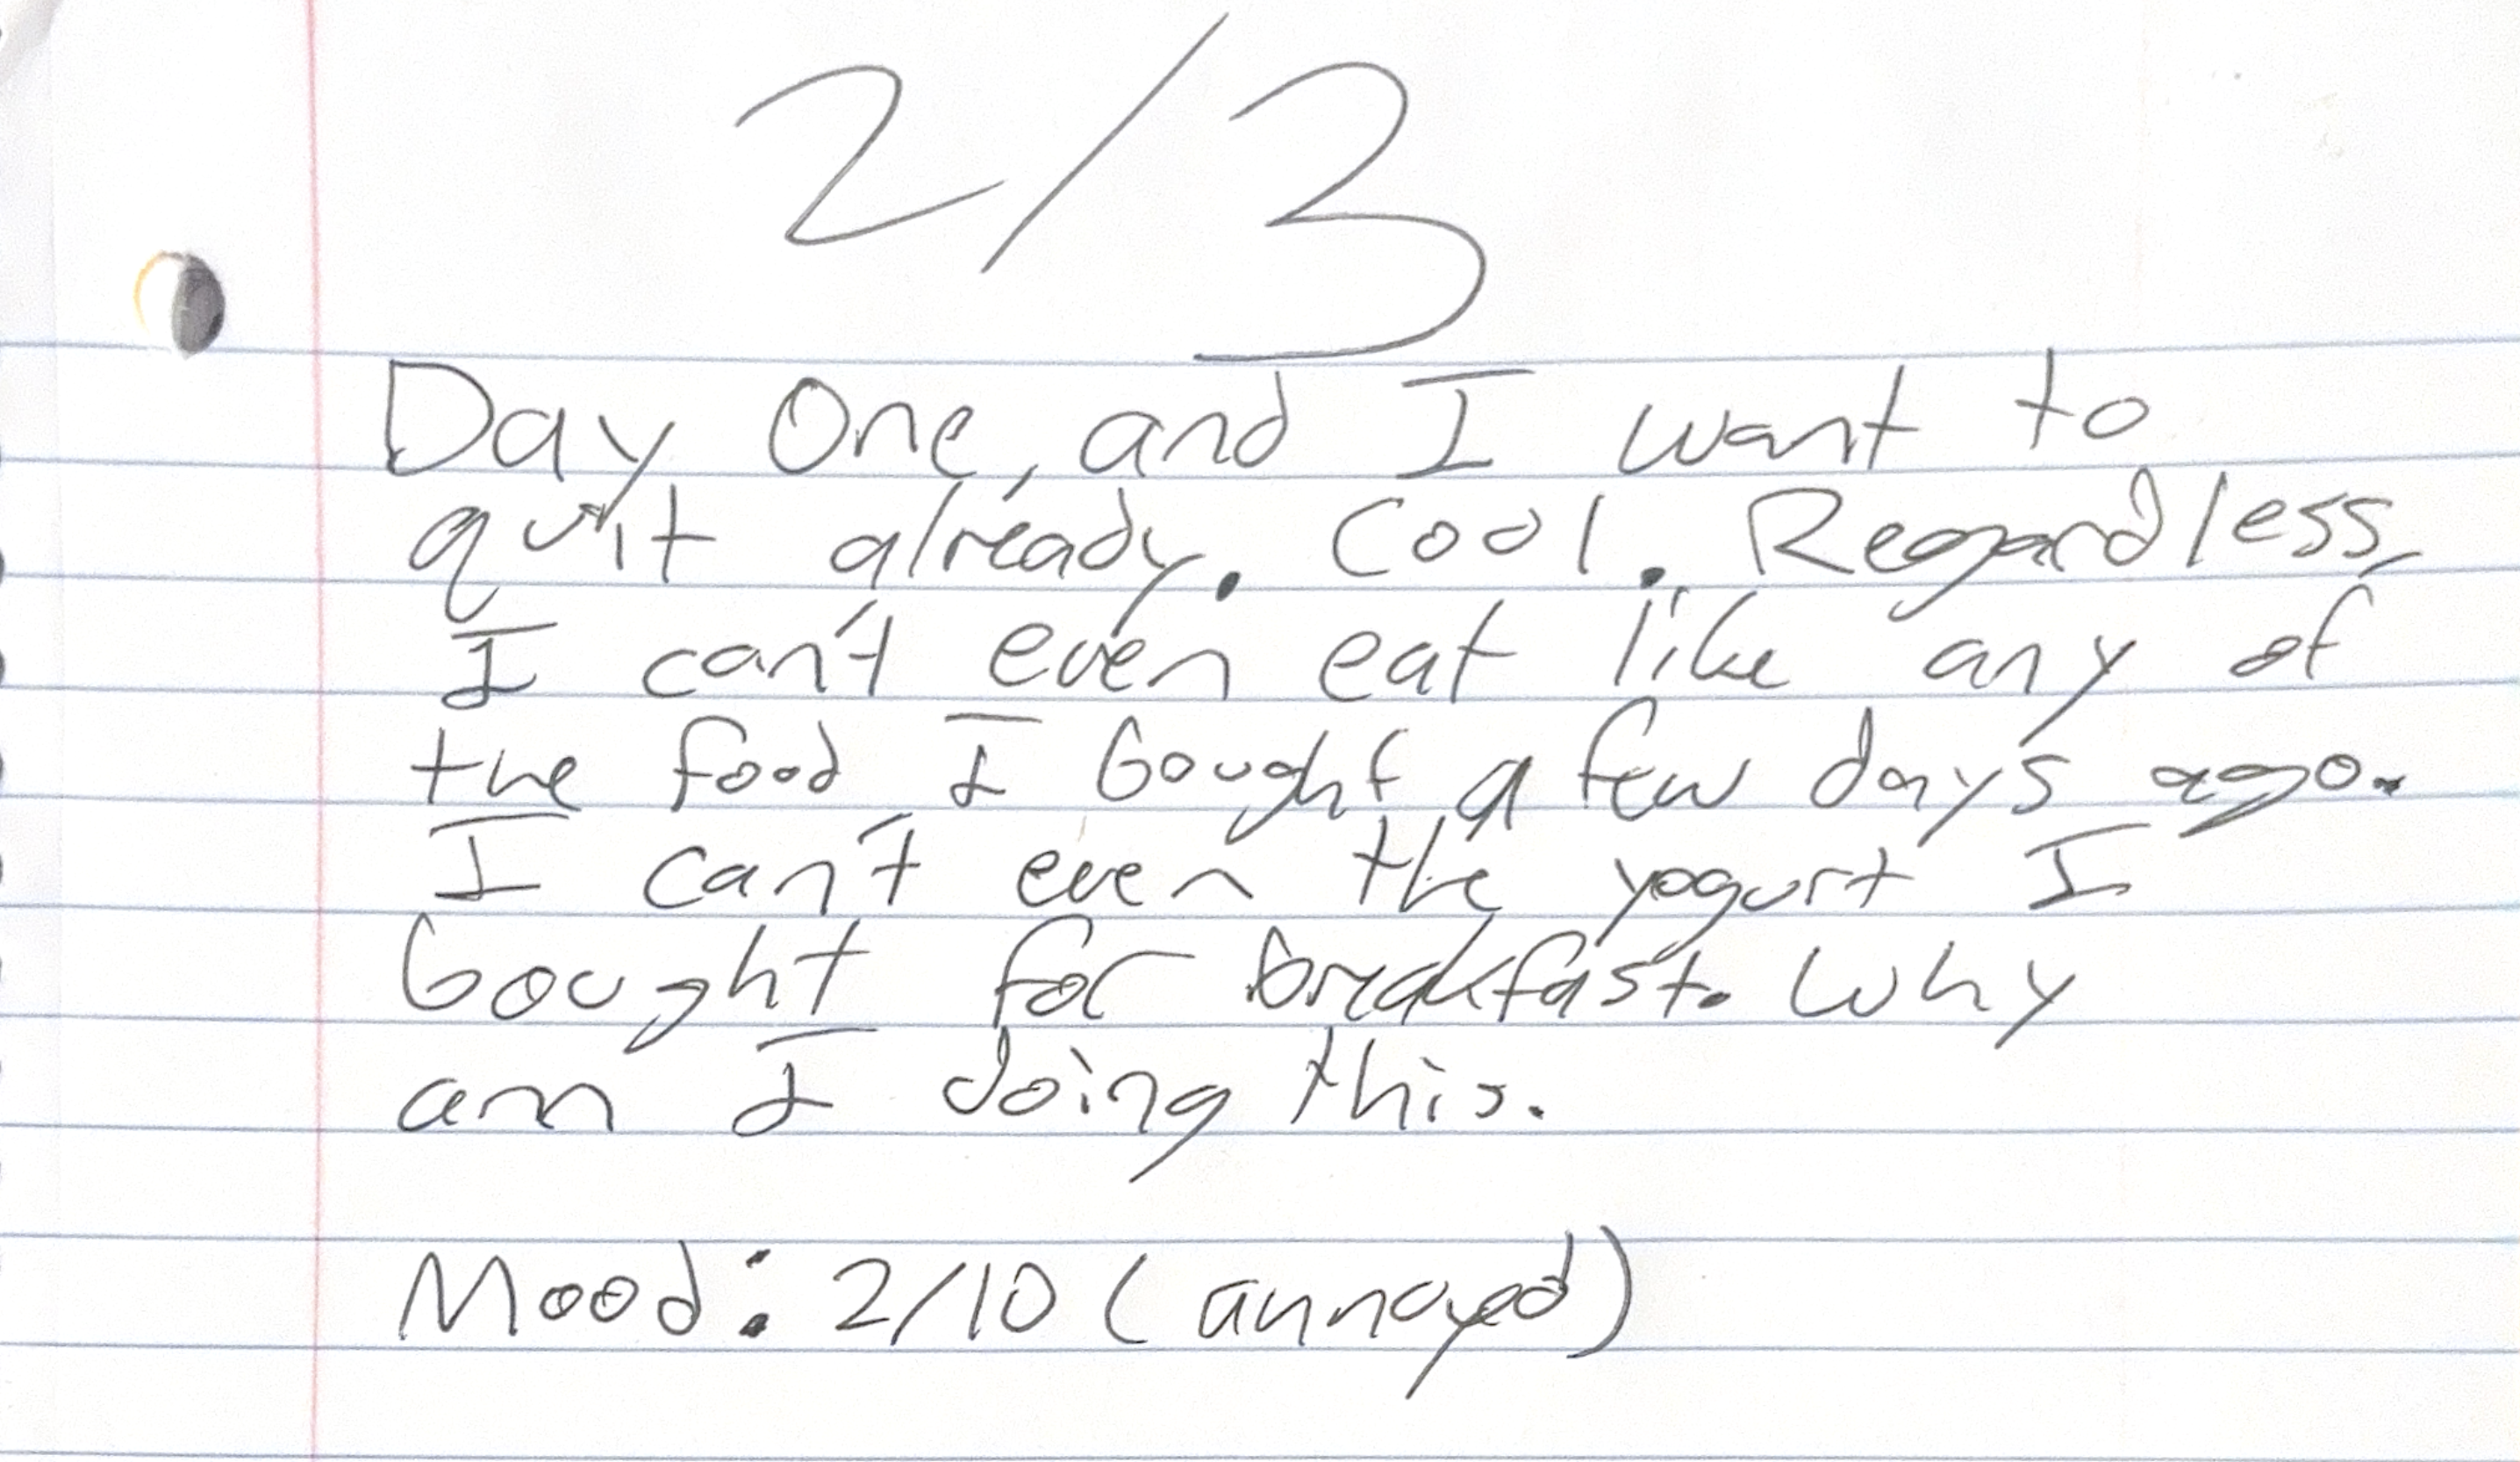 2/3
Day One, and I want to
quit already. Cool. Regardless,
I can't even eat like any of
the food I bought a few days ago.
I can't even the yogurt I
bought for breakfast. Why
am I doing this.
Mood: 2/10 (annoyed)